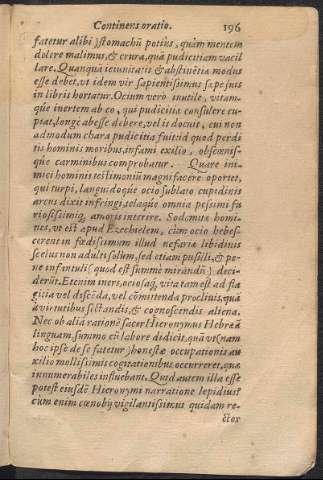 Continens oratio. 196
fatetur alibi) stomachũ potius, quàm mentem
dolere malimus, & crura, quã pudicitiam vacil
lare. Quanquã ieiunitatis & abstinẽtia modus
esse debet, vt idem vir sapientissimus sæpe suis
in libris hortatur. Ocium verò inutile, vitam-
que inertem ab eo, qui pudicitia consulere cu-
piat, longè abesse debere, vel is docuit, cui non
admodum chara pudicitia fuit id quod perdi
tis hominis moribus, infami exilio, obscænis-
que carminibus comprobatur. Quare ini-
mici hominis testimoniũ magni facere oportet,
qui turpi, languidoque ocio sublato cupidinis
arcus dixit infringi, telaque omnia pessimi fu
riosissimique amoris interire. Sodomitæ homi-
nes, vt est apud Ezechielem, cùm ocio hebes-
cerent in fœdissimum illud nefariæ libidinis
scelus non adulti solum, sed etiam pusilli, & pe-
ne infantuli (quod est summè mirandũ) deci-
derũt. Etenim iners, ociosaque vita tam est ad fla
gitia vel discẽda, vel cõmittenda procliuis, quã
à virtutibus sectandis, & cognoscendis aliena.
Nec ob alia rationẽ sacer Hieronymus Hebræã
linguam, summo cũ labore didicit, quã vt (nam
hoc ipse de se fatetur) honestæ occupationis au
xilio mollissimis cogitationibus occurreret, quæ
innumerabiles influebant. Quid autem illa esse
potest eiusdẽ Hieronymi narratione lepidius?
cùm enim cœnobij vigilantissimus quidam re-
ctor